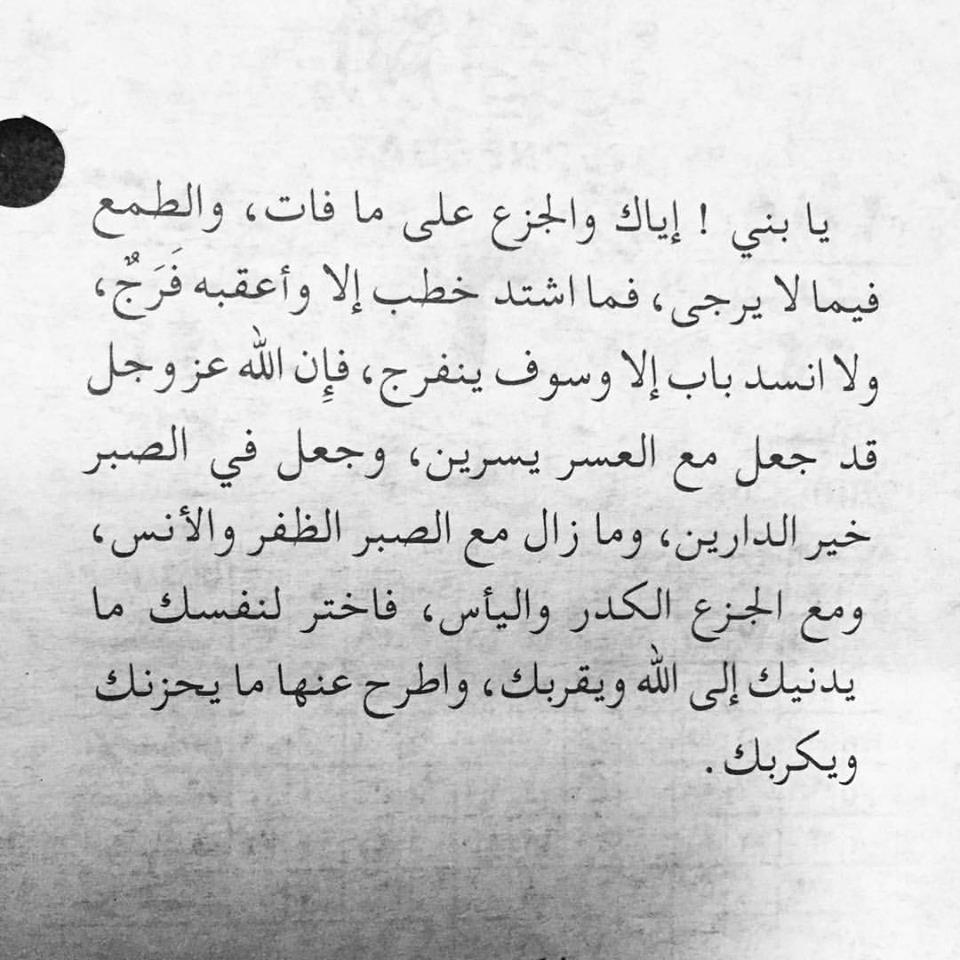 يا بني ! إياك والجزع على ما فات، والطمع
فيما لا يرجى، فما اشتد خطب إلا وأعقبه فَرَجٌ،
ولا انسد باب إلا وسوف ينفرج، فإِن الله عز وجل
قد جعل مع العسر يسرين، وجعل في الصبر
خير الدارين، وما زال مع الصبر الظفر والأنس،
ومع الجزع الكدر واليأس، فاختر لنفسك ما
يدنيك إلى الله ويقربك، واطرح عنها ما يحزنك
ويكربك.